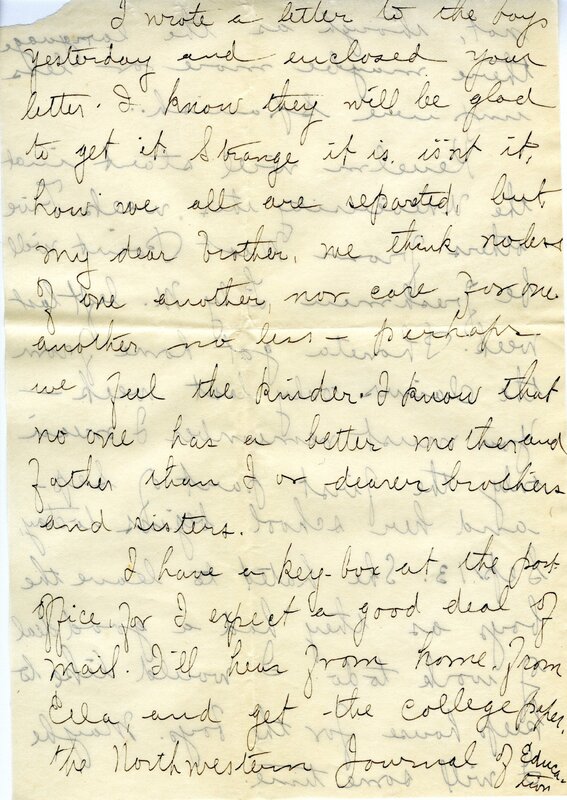 I wrote a letter to the boys
yesterday and enclosed your
letter. I know they will be glad
to get it. Strange it is, isn't it,
how we all are separated, but
my dear brother, we think no less
of one another, nor care for one
another no less - perhaps
we feel the kinder. I know that
no one has a better mother and
father than I or dearer brothers
and sisters.
I have a key-box at the post
office, for I expect a good deal of
mail. I'll hear from home, from
Ella and get the college paper,
the Northwestern Journal of Educa-
tion